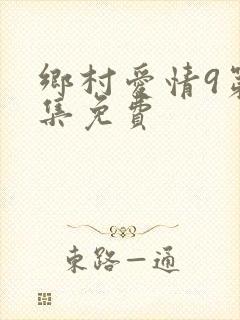 鄉村愛情9第
集免費
東路一通